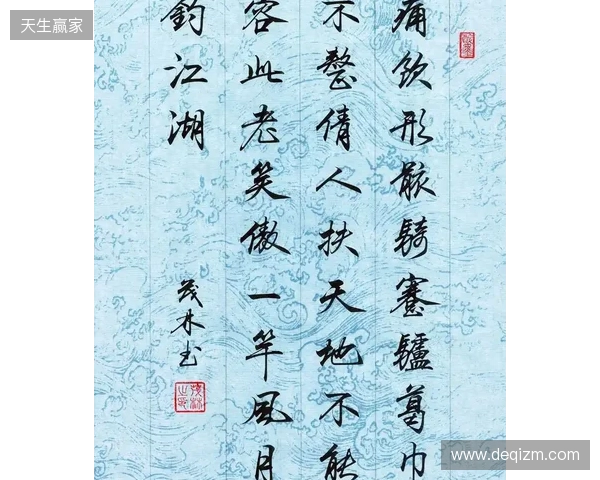 天生赢家
痛飲形骸騎蹇驢葛巾
不整倩人扶天地不能
容此老笑傲一竿風月
釣江湖
茂林书
www.deqizm.com